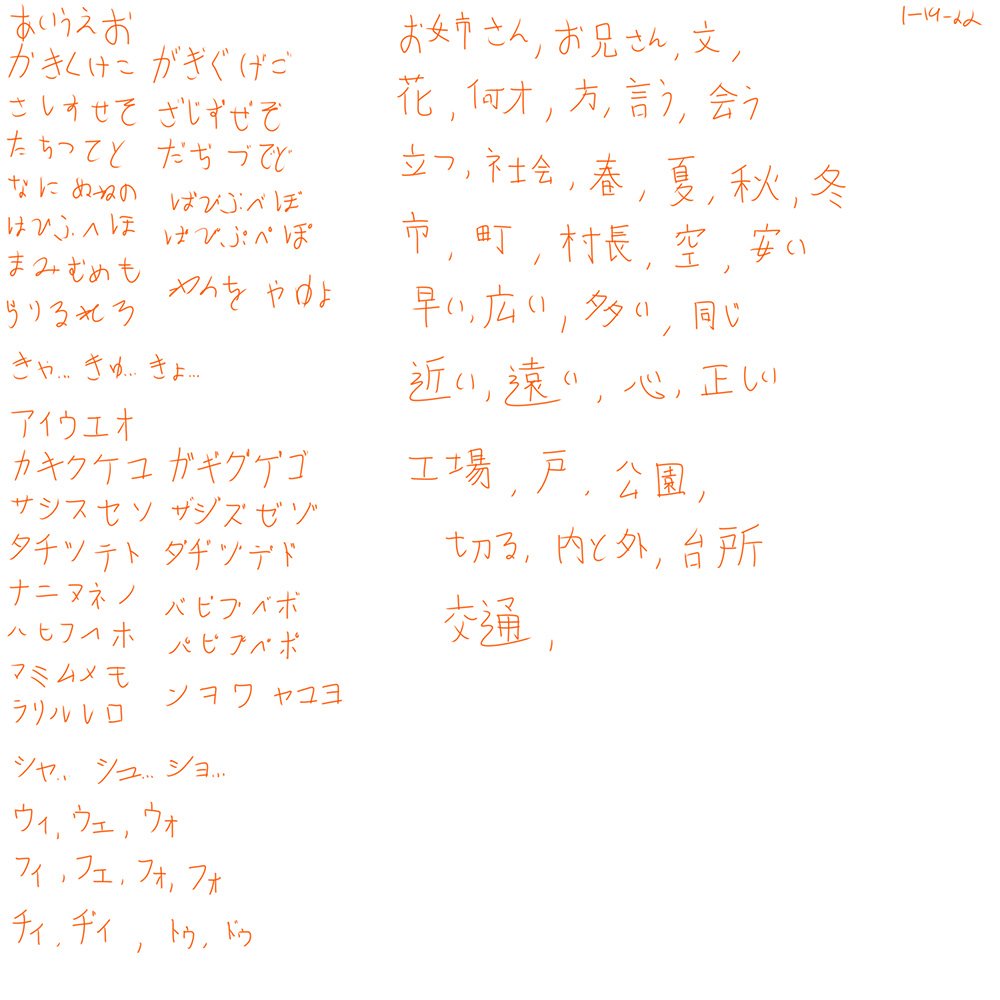 1-19-22
あいうえお
かきくけこ がぎぐげご
さしすせそ ざじずぜぞ
たちつてと だぢづでど
なにぬねの
はひふへほ ばびぶべぼ
まみむめも ぱぴぷぺぽ
らりるれろ わんを やゆよ
きゃ... きゅ... きょ...
アイウエオ
カキクケコ ガギグゲゴ
サシスセソ ザジズゼゾ
タチツテト ダヂヅデド
ナニヌネノ
ハヒフヘホ バビブベボ
マミムメモ パピプペポ
ラリルレロ ンヲワ ヤユヨ
シャ... シュ... ショ...
ウィ, ウェ, ウォ
フィ, フェ, フォ, フォ
チィ, ヂィ, トゥ, ドゥ
お姉さん, お兄さん, 文,
花, 何才, 方, 言う, 会う
立つ, 社会, 春, 夏, 秋, 冬
市, 町, 村長, 空, 安い
早い, 広い, 多い, 同じ
近い, 遠い, 心, 正しい
工場, 戸, 公園,
切る, 内と外, 台所
交通,